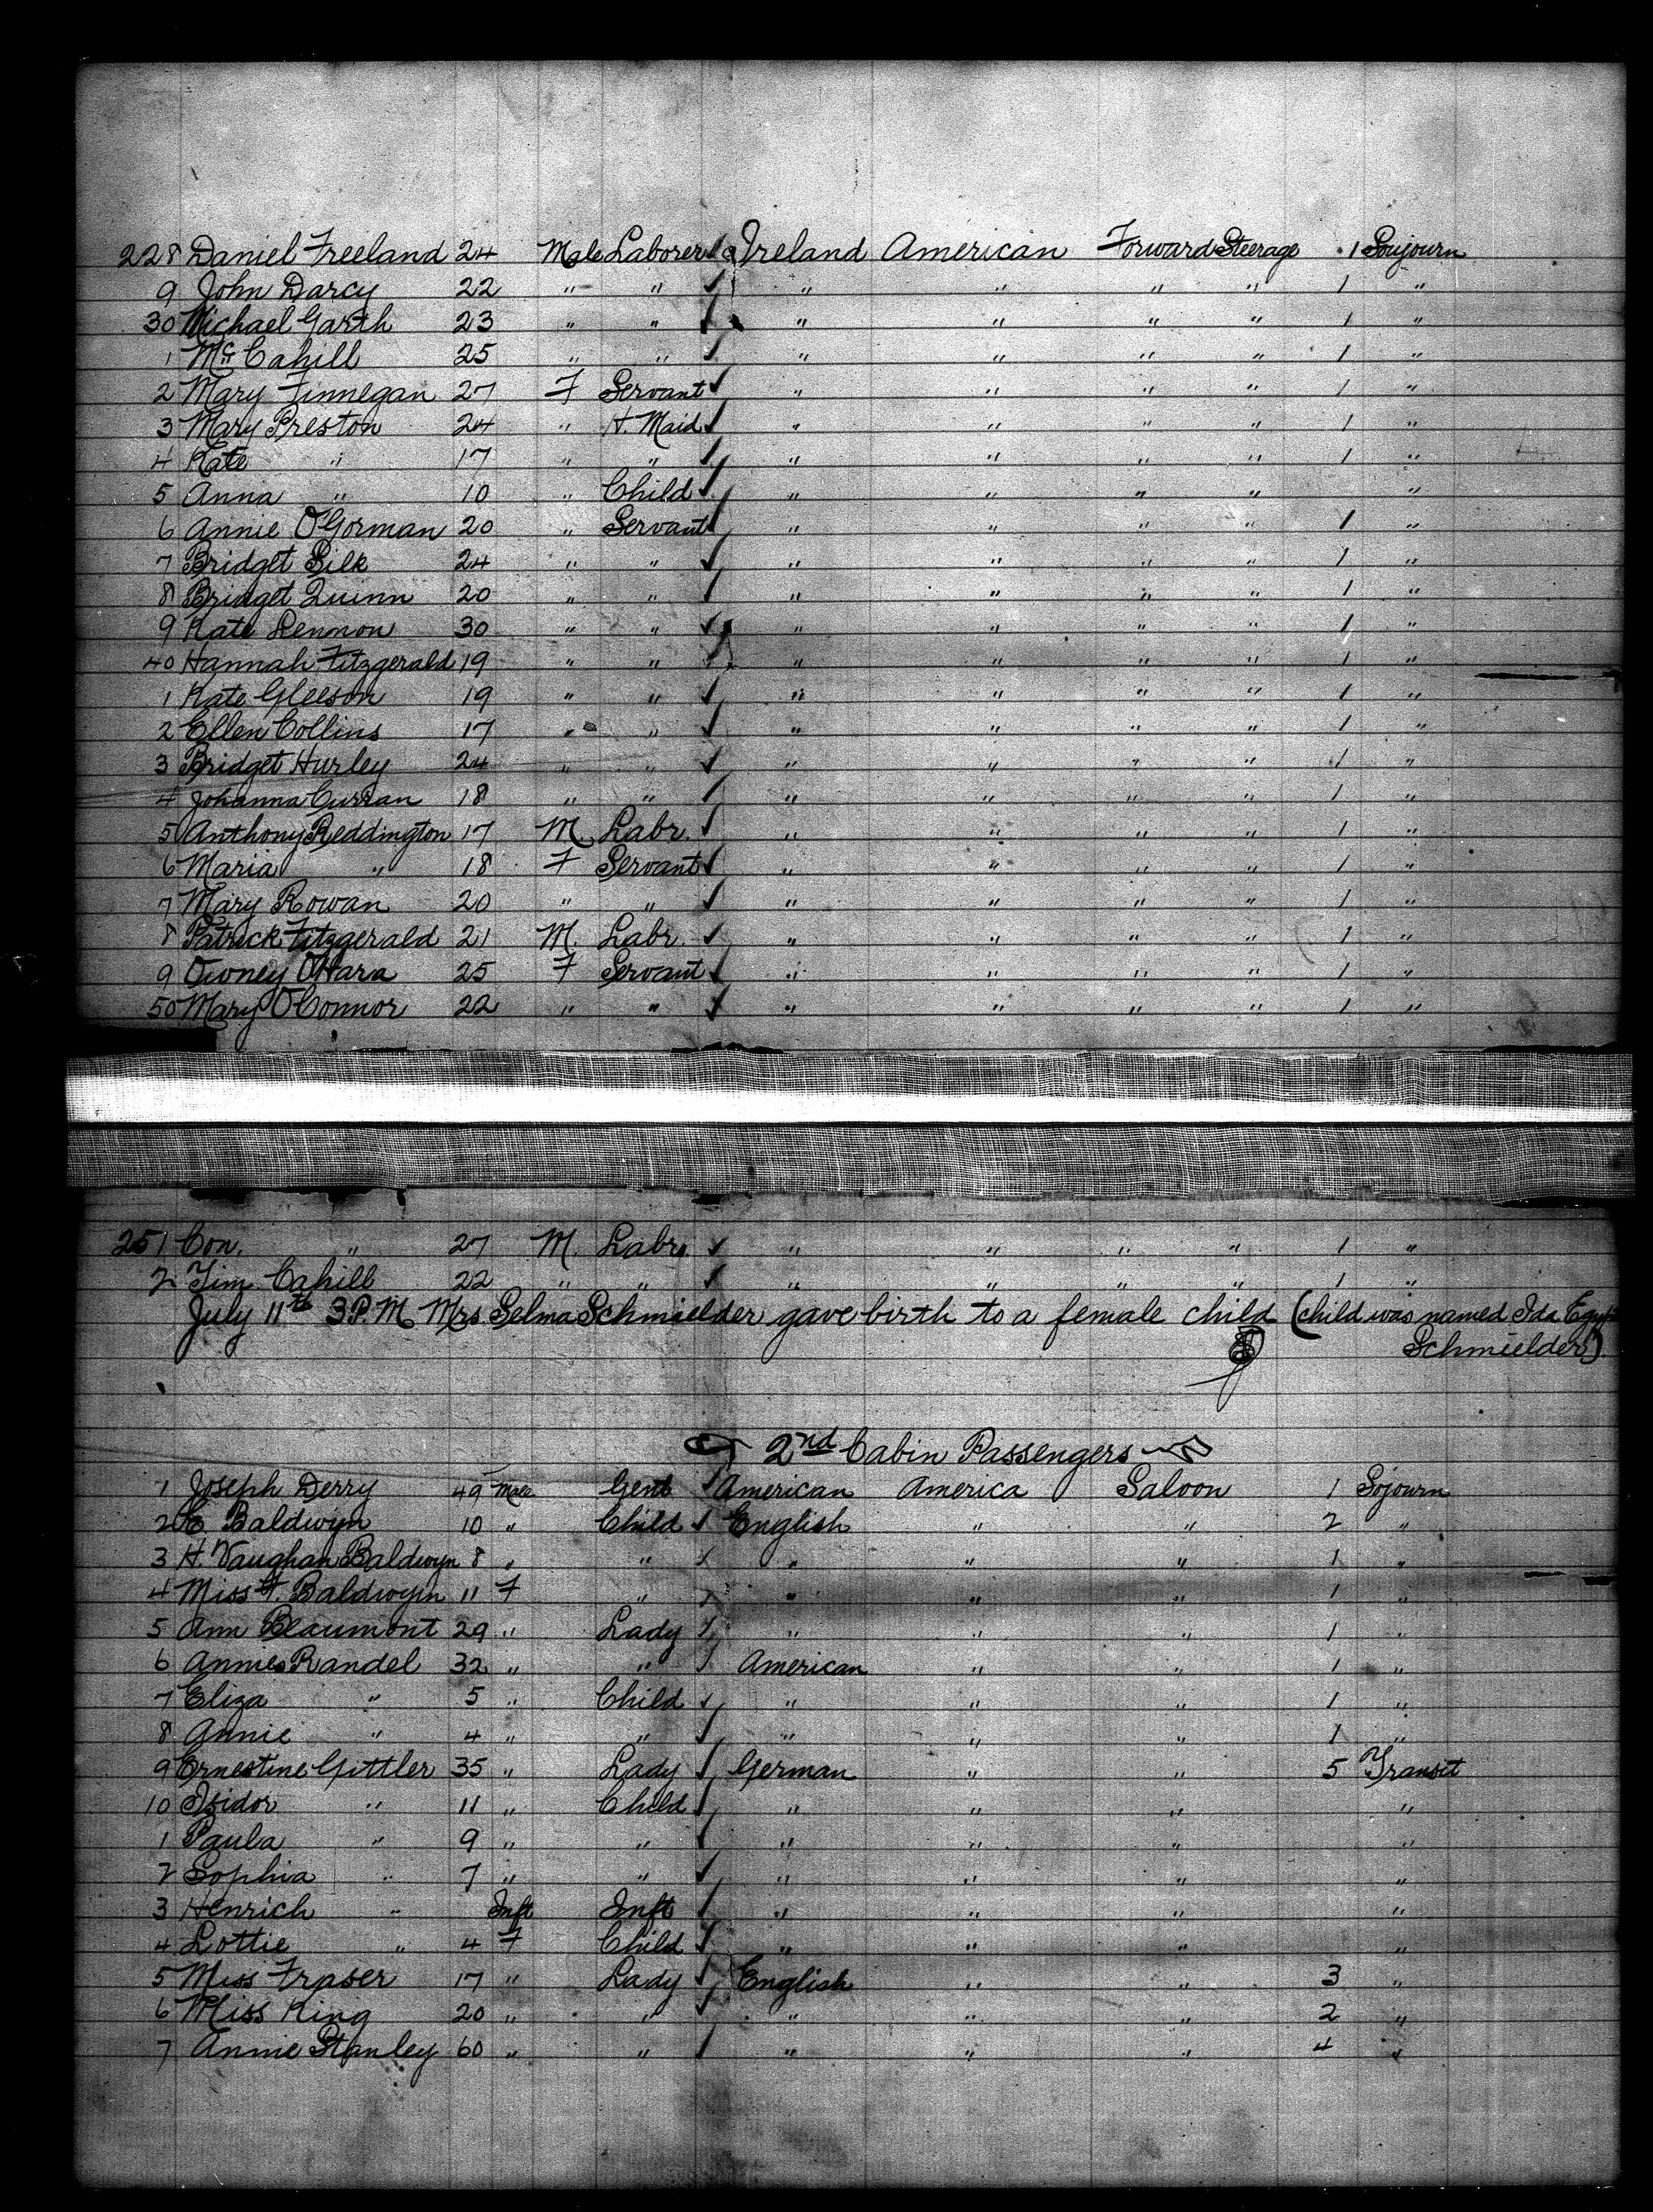 228 Daniel Freeland 24 Male Laborer Ireland American Forward Steerage 1 Soujourn
9 John Darcy 22 " " " " " " 1 "
30 Michael Garth 23 " " " " " " 1 "
1 Mc Cahill 25 " " " " " " 1 "
2 Mary Finnegan 27 F Servant " " " " 1 "
3 Mary Preston 24 " H. Maid " " " " 1 "
4 Kate " 17 " " " " " " 1 "
5 Anna " 10 " Child " " " " "
6 Annie O'Gorman 20 " Servant " " " " 1 "
7 Bridget Silk 24 " " " " " " 1 "
8 Bridget Quinn 20 " " " " " " 1 "
9 Kate Lennon 30 " " " " " " 1 "
40 Hannah Fitzgerald 19 " " " " " " 1 "
1 Kate Gleeson 19 " " " " " " 1 "
2 Ellen Collins 17 " " " " " " 1 "
3 Bridget Hurley 24 " " " " " " 1 "
4 Johanna Curran 18 " " " " " " 1 "
5 Anthony Reddington 17 M Labr. " " " " 1 "
6 Maria " 18 F Servant " " " " 1 "
7 Mary Rowan 20 " " " " " " 1 "
8 Patrick Fitzgerald 21 M. Labr. " " " " 1 "
9 Owney O'Hara 25 F Servant " " " " 1 "
50 Mary O'Connor 22 " " " " " " 1 "
251 Con. " 27 M. Labr. " " " " 1 "
2 Tim Cahill 22 " " " " " " 1 "
July 11th 3 P.M. Mrs Selma Schmielder gave birth to a female child (child was named Ida
Schmielder)
2nd Cabin Passengers
1 Joseph Derry 49 Male Gent American America Saloon 1 Sojourn
2 E Baldwyn 10 " Child English " " 2 "
3 H. Vaughan Baldwyn 8 " " " " " 1 "
4 Miss F. Baldwyn 11 F " " " " 1 "
5 Ann Beaumont 29 " Lady " " " 1 "
6 Annie Randel 32 " " American " " 1 "
7 Eliza " 5 " Child " " " 1 "
8 Annie " 4 " " " " " 1 "
9 Ernestine Gittler 35 " Lady German " " 5 Transit
10 Isidor " 11 " Child " " " "
1 Paula " 9 " " " " " "
2 Sophia " 7 " " " " " "
3 Henrich " Inft Inft " " " "
4 Lottie " 4 F Child " " " "
5 Miss Fraser 17 " Lady English " " 3 "
6 Miss King 20 " " " " " 2 "
7 Annie Stanley 60 " " " " " 4 "